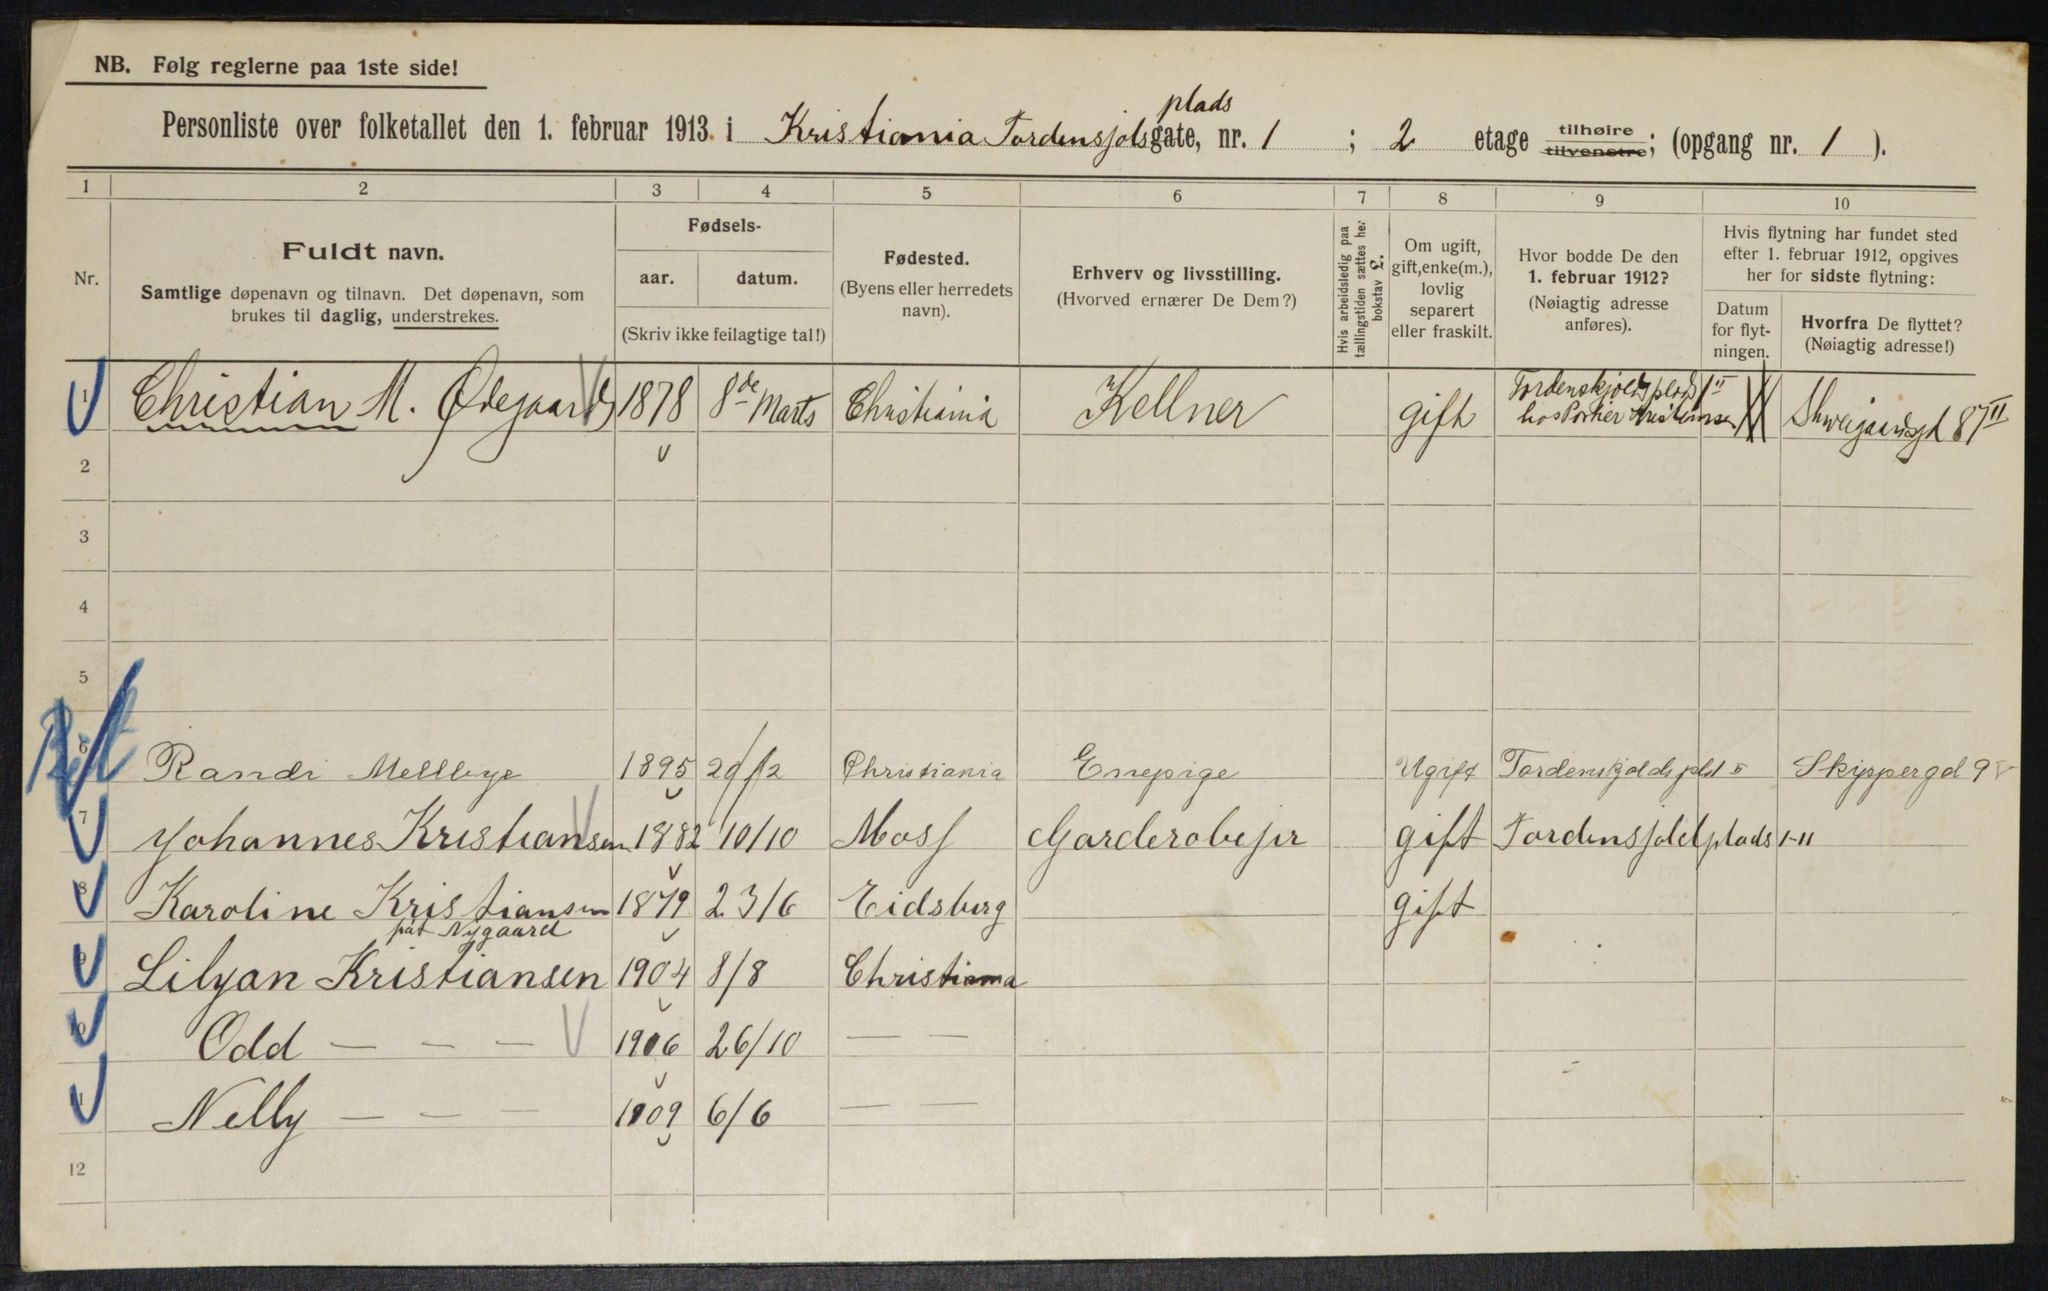 NB. Følg reglerne paa 1ste side!
plads
Personliste over folketallet den 1. februar 1913 i Kristiania Tordensjolsgate, nr. 1 ; 2 etage tilhøire tilvenstre; (opgang nr. 1 ).
1 2 3 4 5 6 7 8 9 10
Nr.
Fuldt navn.
Samtlige døpenavn og tilnavn. Det døpenavn, som
brukes til daglig, understrekes.
Fødsels-
aar. datum.
(Skriv ikke feilagtige tal!)
Fødested.
(Byens eller herredets
navn).
Erhverv og livsstilling.
(Hvorved ernærer De Dem?)
Hvis arbeidsledig paa
tællingstiden sættes her
bokstav L.
Om ugift,
gift, enke(m.),
lovlig
separert
eller fraskilt.
Hvor bodde De den
1. februar 1912?
(Nøiagtig adresse
anføres).
Hvis flytning har fundet sted
efter 1. februar 1912, opgives
her for sidste flytning:
Datum
for flyt-
ningen.
Hvorfra De flyttet?
(Nøiagtig adresse!)
1 Christian M. Ødegaard 1878 8de Marts Christiania Kellner gift Tordenskjolds plads 1 II
hos Portier Kristiansen Shweigaardsgd 87 II
2
3
4
5
6 Randi Mellbye 1895 29/12 Christiania Enepige Ugift Tordenskjolds pl 1 II Skippergd 9
7 Johannes Kristiansen 1882 10/10 Moss Garderobejer gift Tordensjoldplads 1-II
8 Karoline Kristiansen 1879 23/6 Eidsberg gift
føt Nygaard
9 Lilyan Kristiansen 1904 8/8 Christiania
10 Odd — — — 1906 26/10 — —
11 Nelly — — — 1909 6/6 — —
12